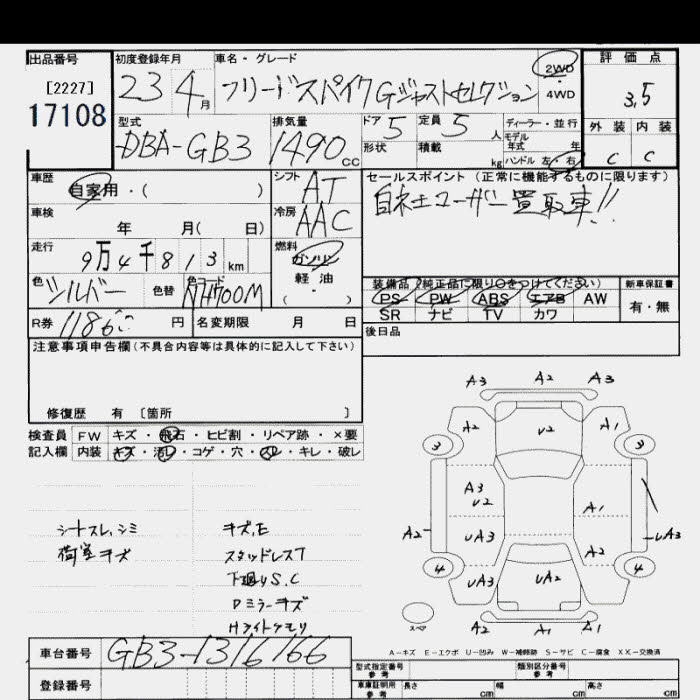 出品番号
[2227]
17108
初度登録年月
23 4月
車名・グレード
フリードスパイクGジャストセレクション
2WD
4WD
評価点
3.5
外装 内装
C C
型式
DBA-GB3
排気量
1490cc
ドア 5
形状
定員 5人
積載 kg
ディーラー・並行
モデル
年式 年
ハンドル 左・右
車歴
自家用・( )
シフト
AT
セールスポイント(正常に機能するものに限ります)
自社ユーザー買取車!!
車検
年 月( 日)
冷房
AAC
走行
9万4千813km
燃料
ガソリン
軽油
( ・ )
色
シルバー
色替
色コード
NH700M
装備品(純正品に限り○をつけてください)
PS PW ABS エアB AW
SR ナビ TV カワ
新車保証書
有・無
R券
11860円
名変期限 月 日
後日品
注意事項申告欄(不具合内容等は具体的に記入して下さい)
修復歴 有 〔箇所 〕
検査員 FW キズ・飛石・ヒビ割・リペア跡・×要
記入欄 内装 キズ・汚レ・コゲ・穴・スレ・キレ・破レ
シートスレ,シミ
荷室キズ
キズ,E
スタッドレスT
下廻りS.C
Dミラーキズ
Hライトクモリ
A3 A2 A3
A2 U2 A1
3 3
A3
U2
A1
A2 UA3 A2 UA3
4 UA3 UA2 4
スペア
A2 A1 A2
A-キズ E-エクボ U-凹み W-補修跡 S-サビ C-腐食 XX-交換済
車台番号
GB3-1316166
登録番号
型式指定番号
参考
類別区分番号
参考
車庫証明用
参考
長さ cm 幅 cm 高さ cm